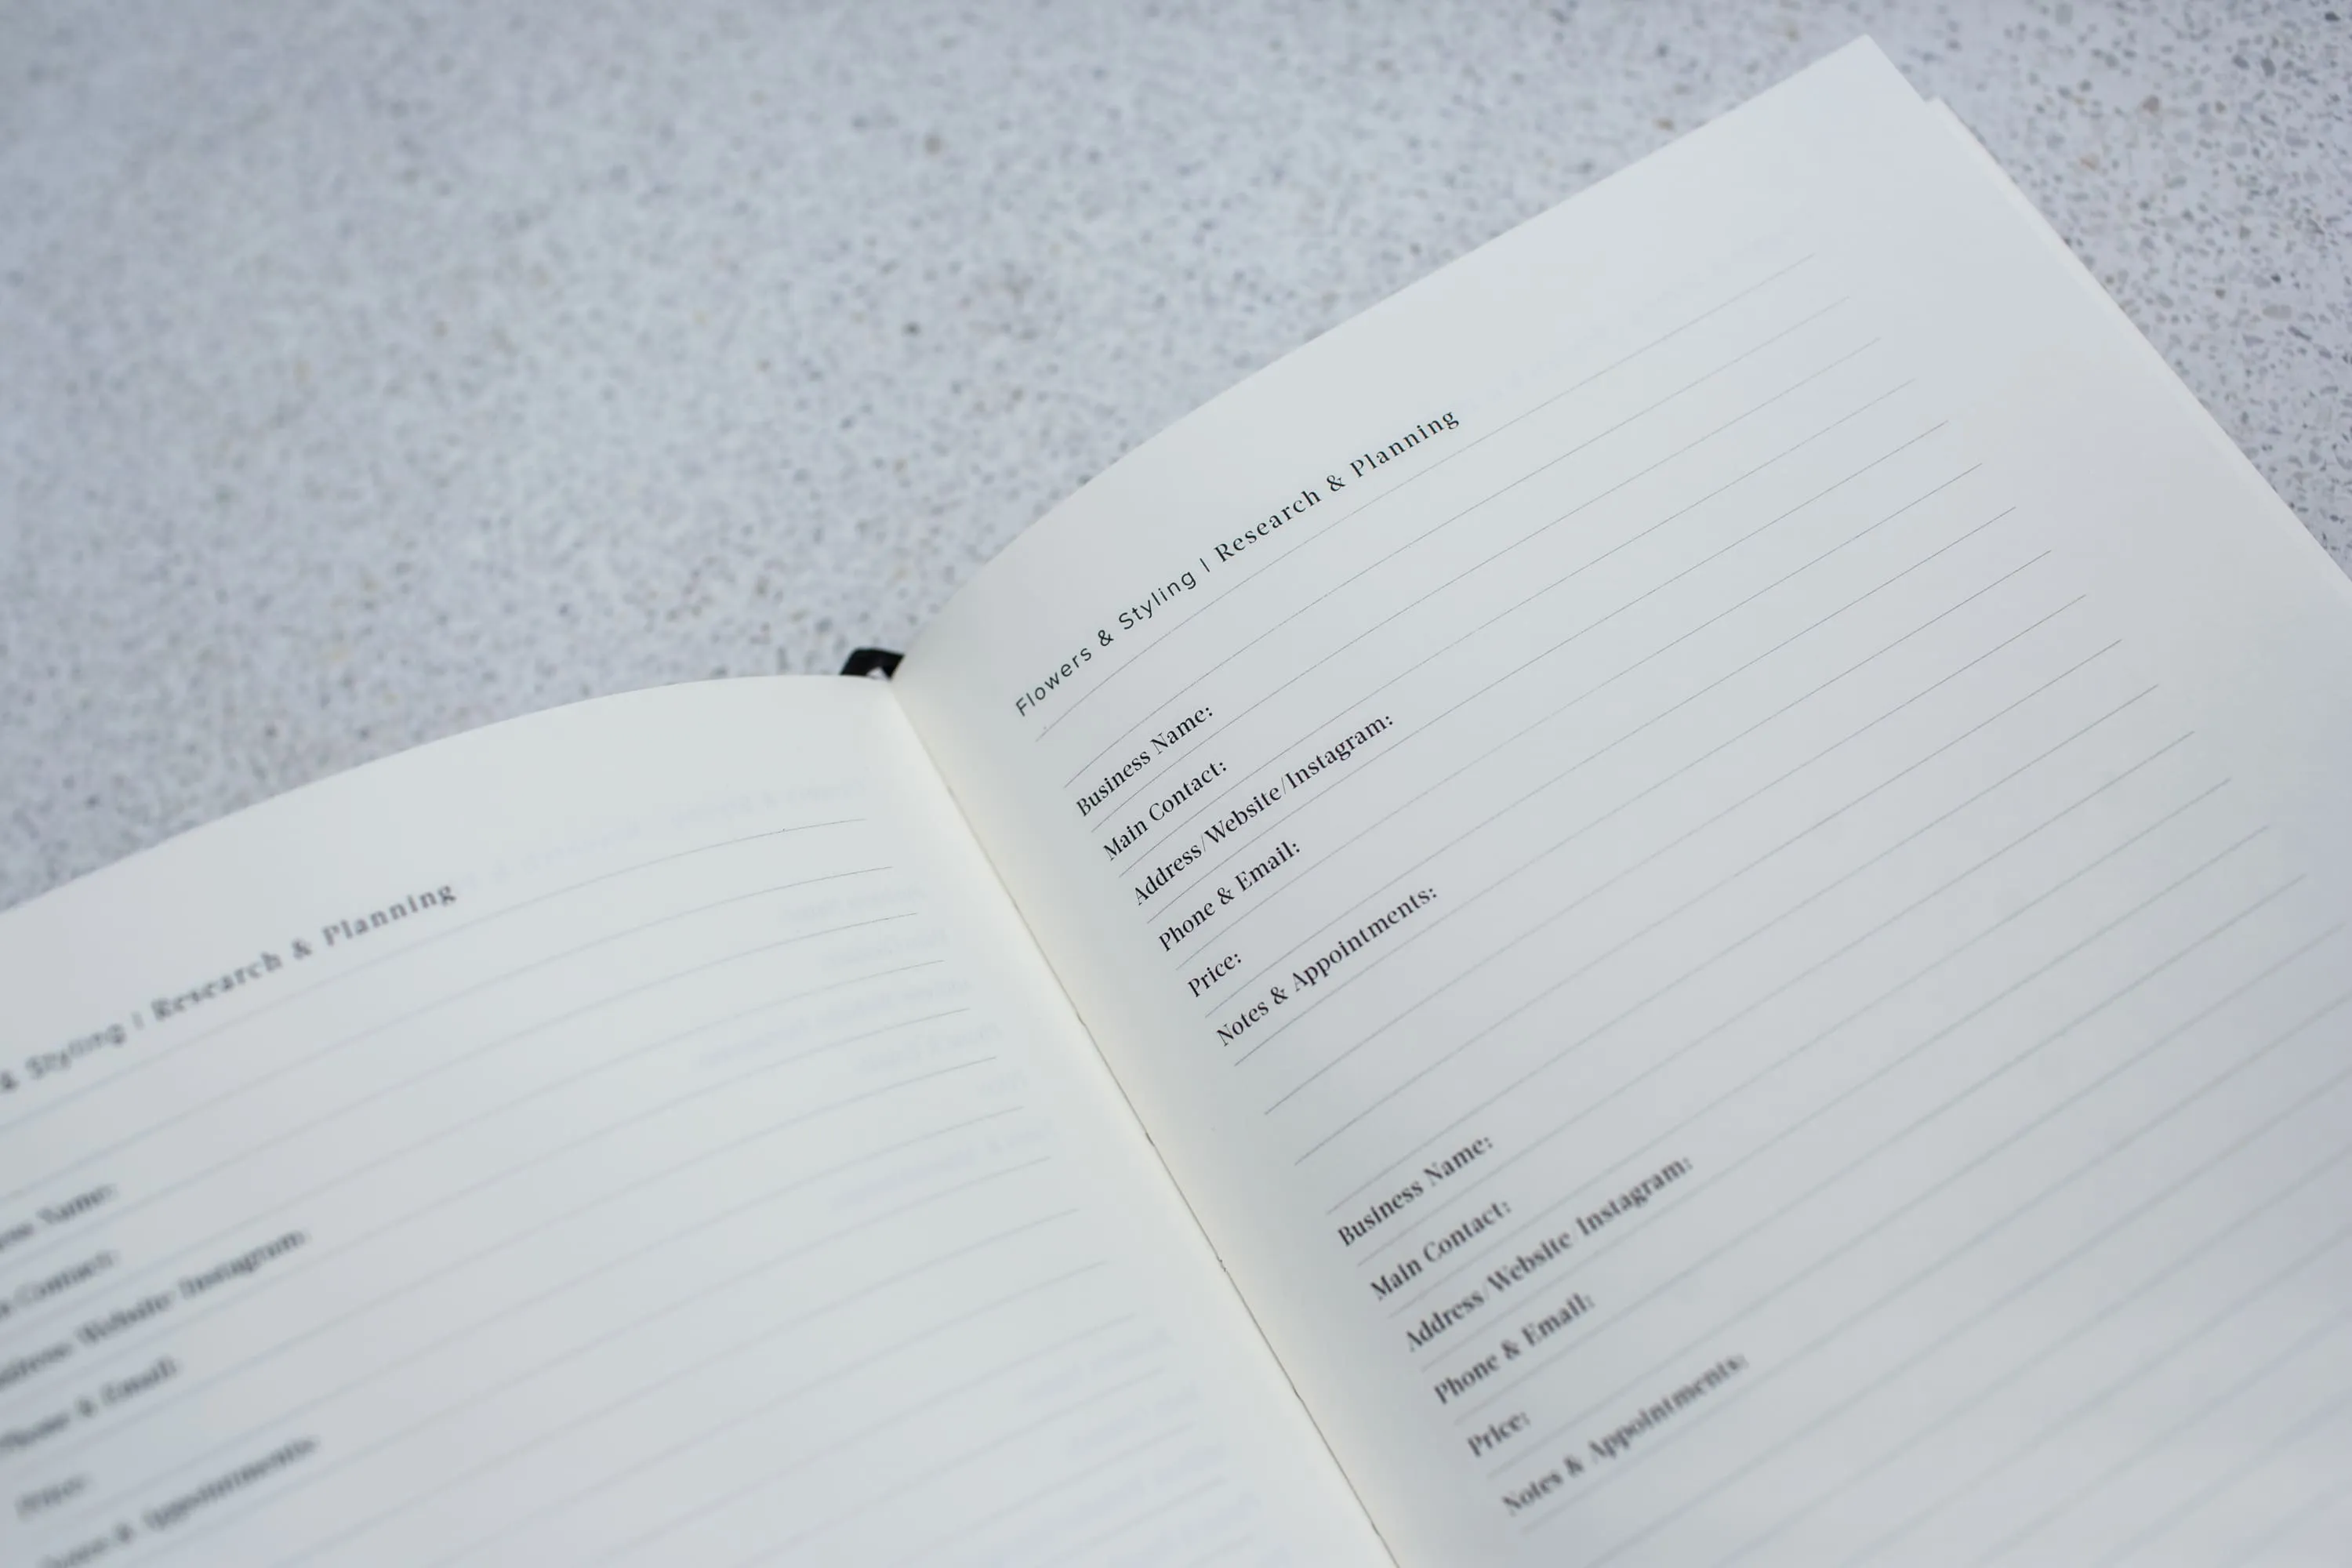 & Styling | Research & Planning
Name:
Contact:
Website/Instagram:
Phone & Email:
Price:
& Appointments:
Flowers & Styling | Research & Planning
Business Name:
Main Contact:
Address/Website/Instagram:
Phone & Email:
Price:
Notes & Appointments:
Business Name:
Main Contact:
Address/Website/Instagram:
Phone & Email:
Price:
Notes & Appointments: